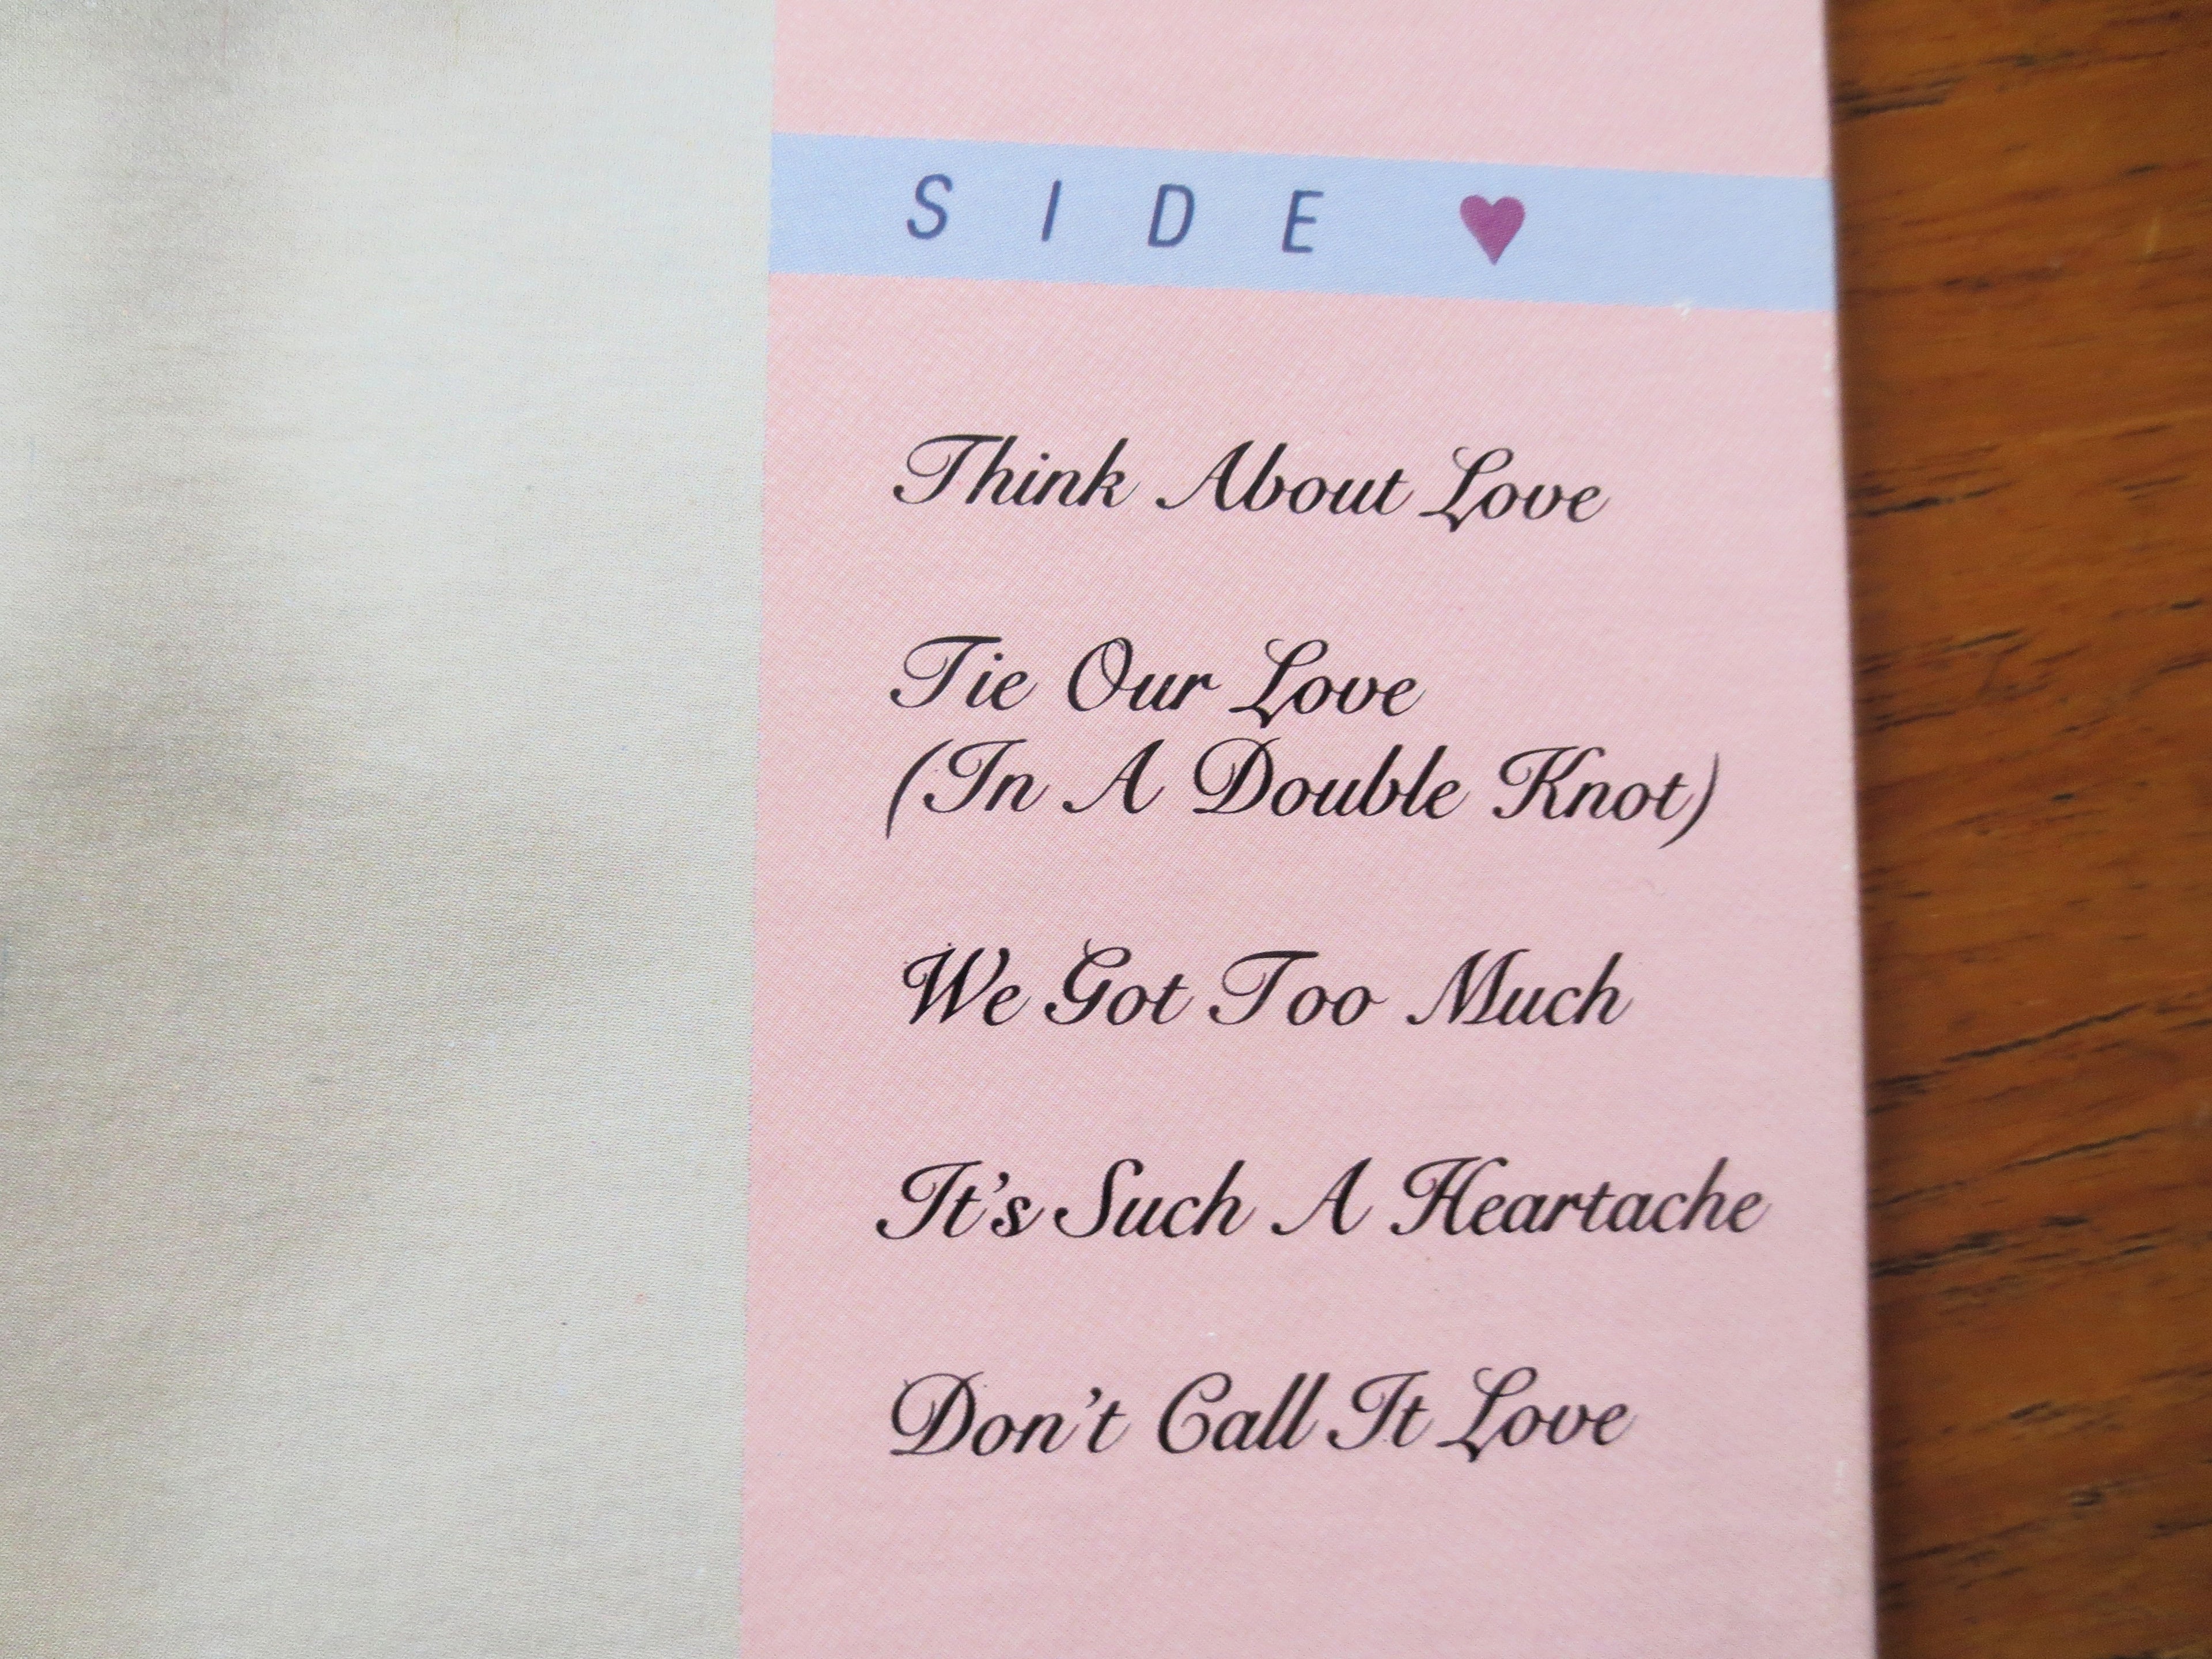 SIDE ♥
Think About Love
Tie Our Love
(In A Double Knot)
We Got Too Much
It's Such A Heartache
Don't Call It Love